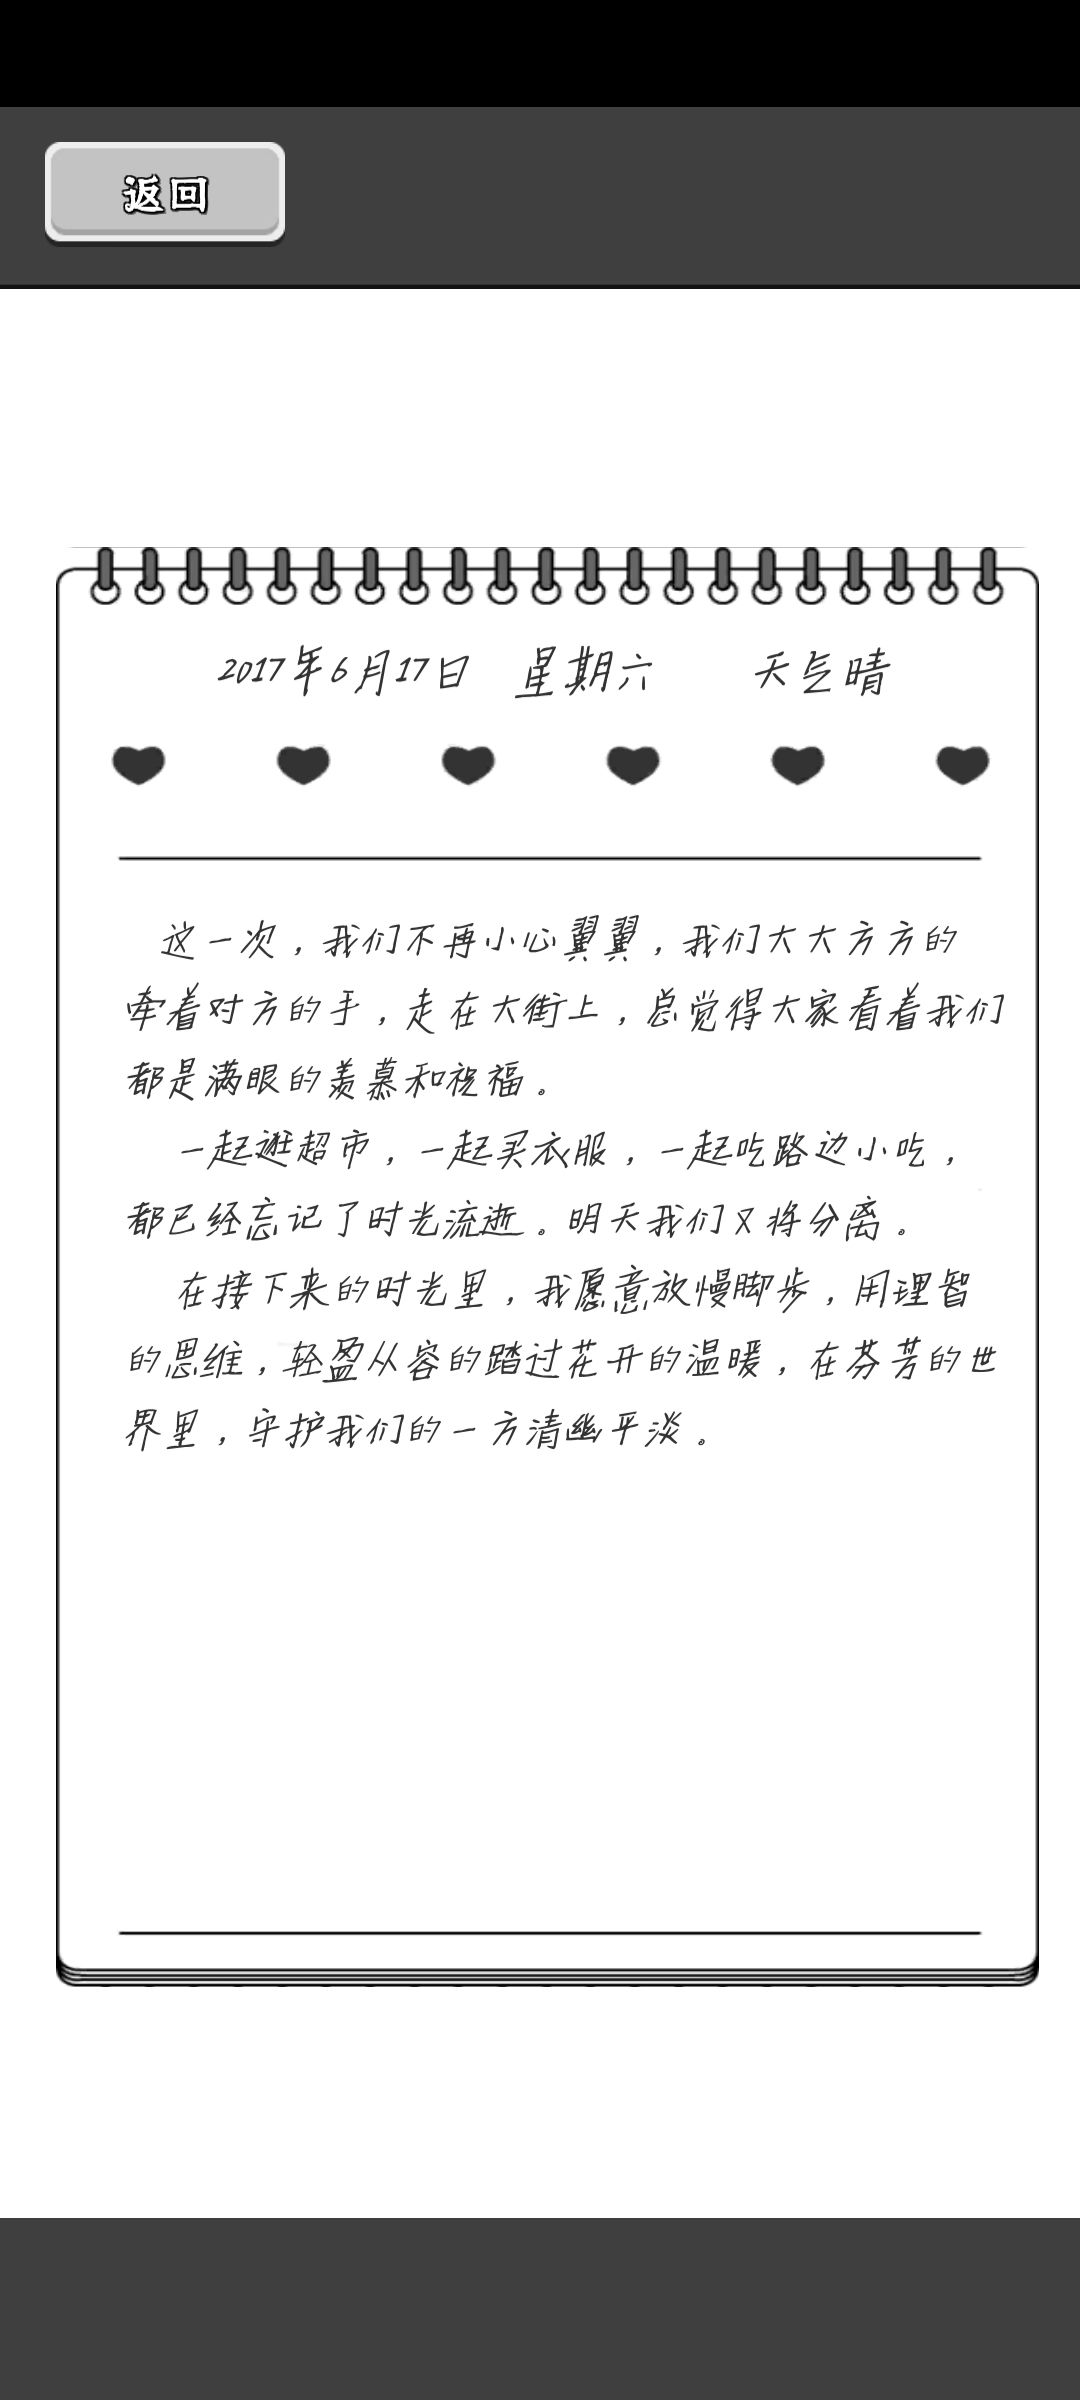 返回
2017年6月17日 星期六 天气晴
这一次，我们不再小心翼翼，我们大大方方的
牵着对方的手，走在大街上，总觉得大家看着我们
都是满眼的羡慕和祝福。
一起逛超市，一起买衣服，一起吃路边小吃，
都已经忘记了时光流逝。明天我们又将分离。
在接下来的时光里，我愿意放慢脚步，用理智
的思维，轻盈从容的踏过花开的温暖，在芬芳的世
界里，守护我们的一方清幽平淡。